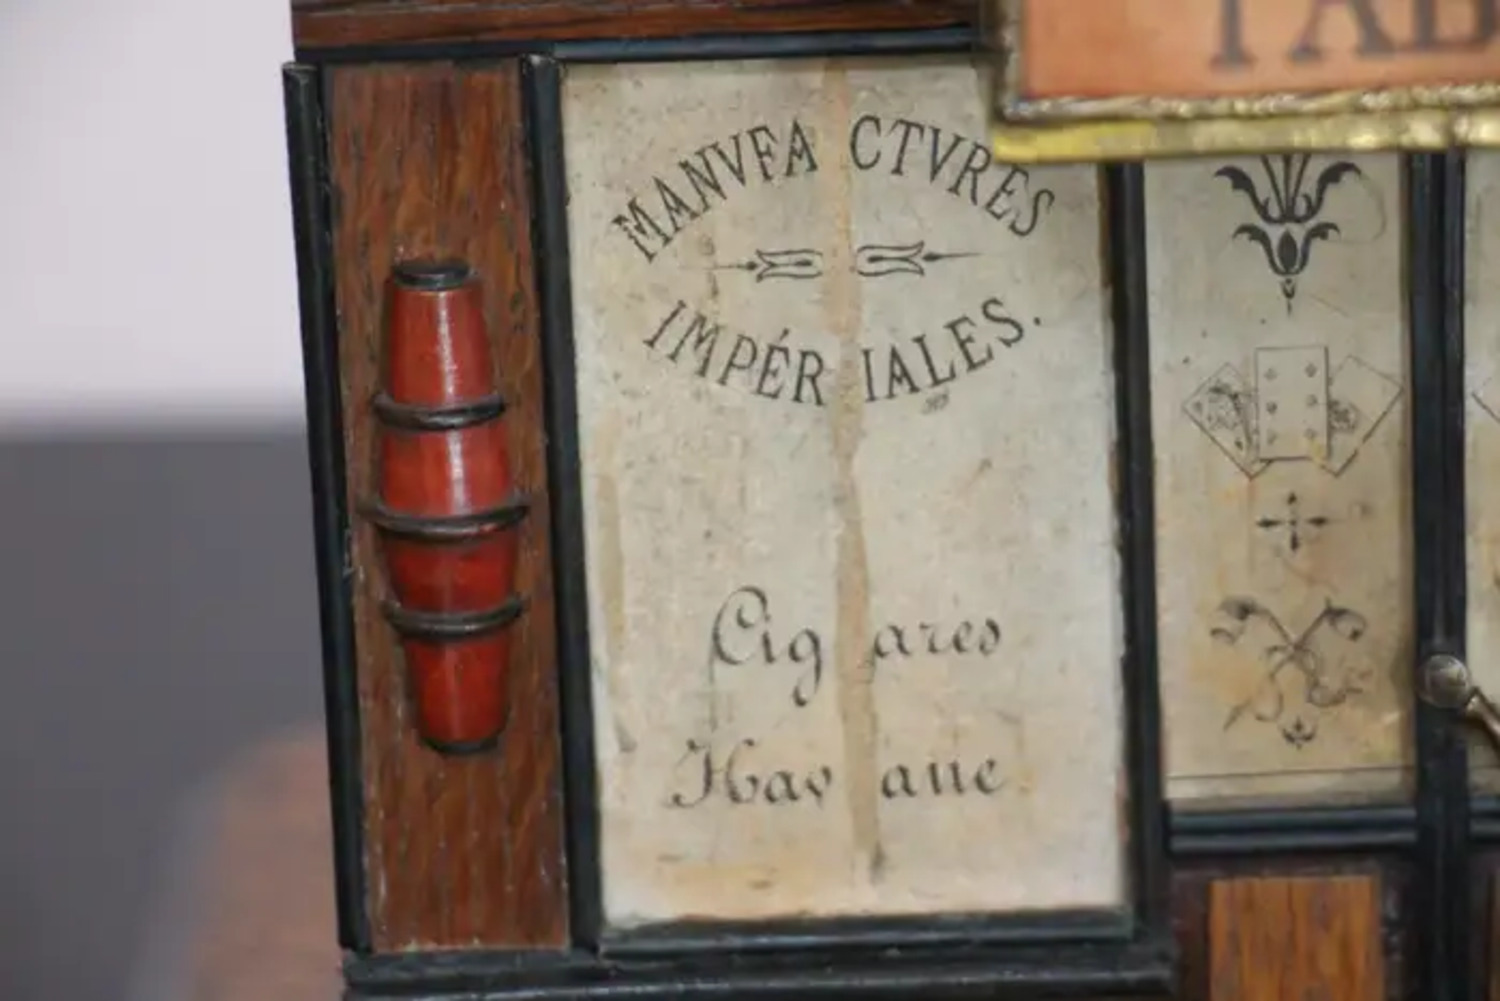 TAB
MANVFACTVRES
IMPÉRIALES.
Cigares
Havane